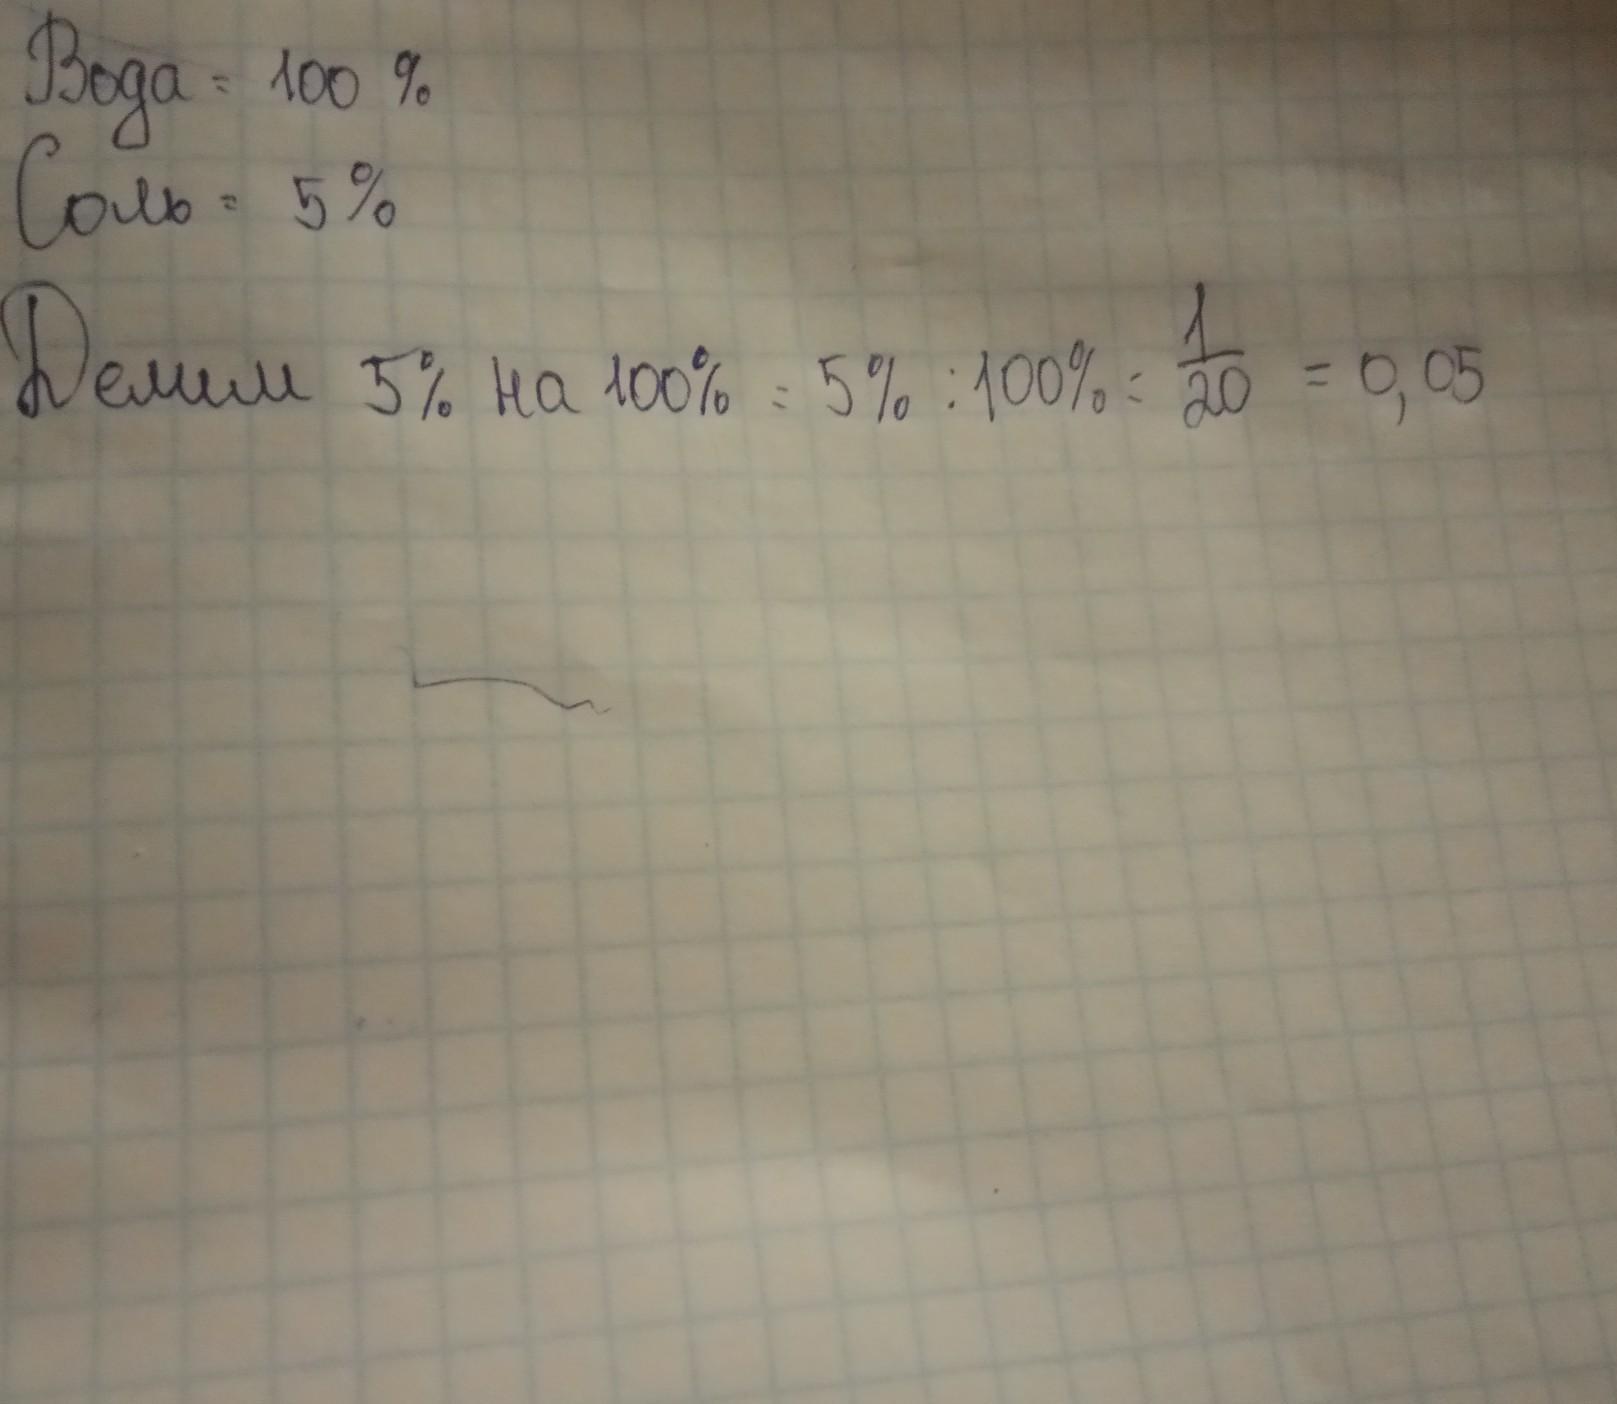 Вода = 100 %
Соль = 5%
Делим 5% на 100% = 5% : 100% = 1/20 = 0,05